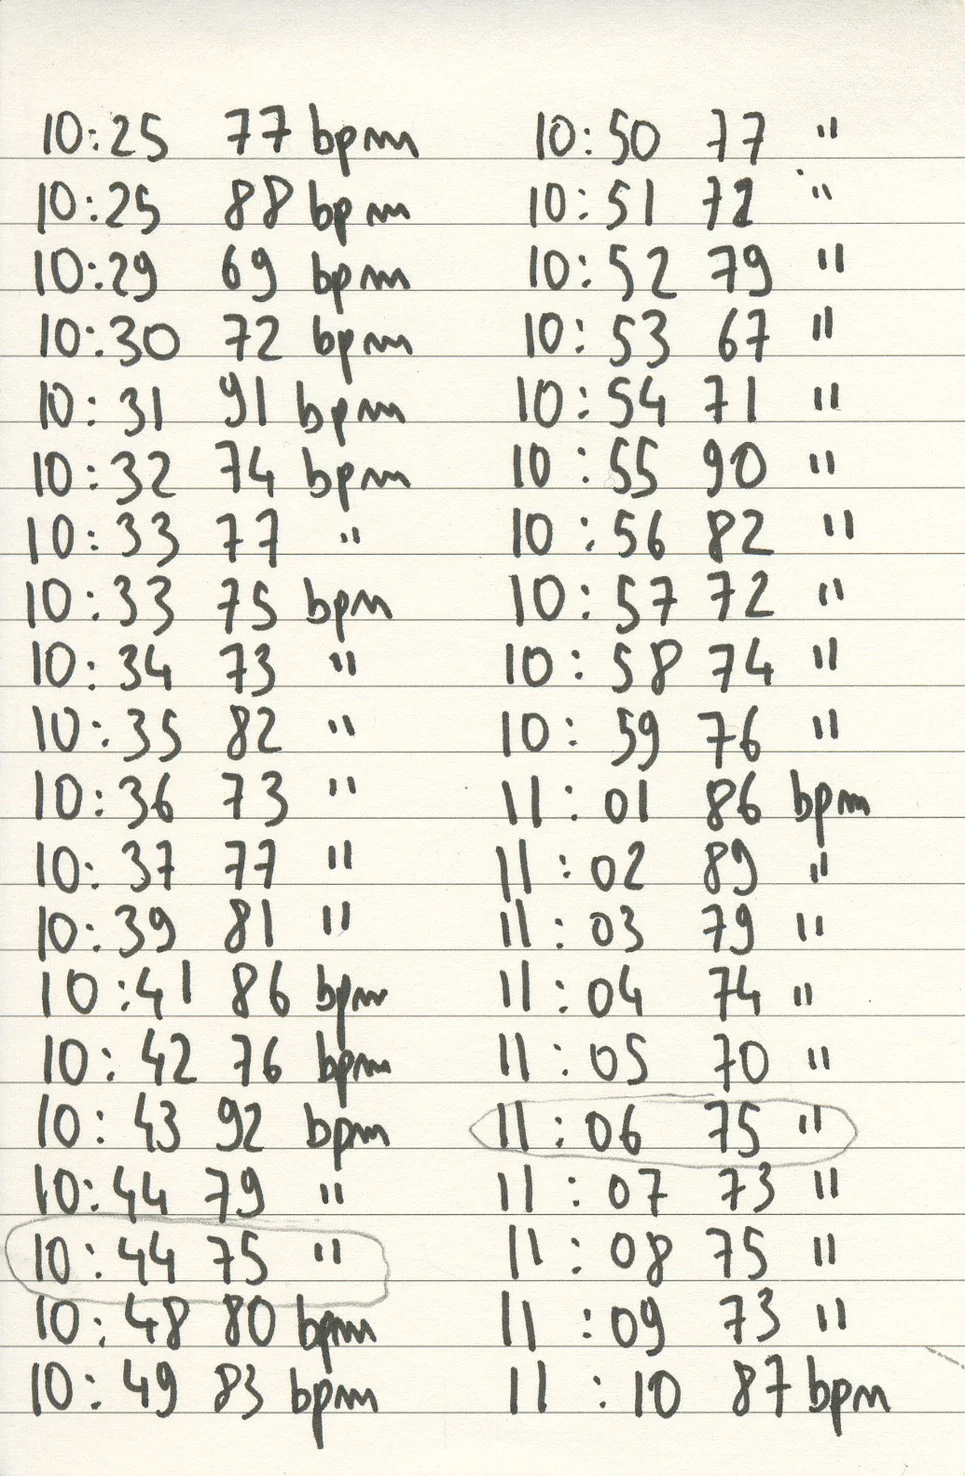 10:25 77 bpm
10:25 88 bpm
10:29 69 bpm
10:30 72 bpm
10:31 91 bpm
10:32 74 bpm
10:33 77 "
10:33 75 bpm
10:34 73 "
10:35 82 "
10:36 73 "
10:37 77 "
10:39 81 "
10:41 86 bpm
10:42 76 bpm
10:43 92 bpm
10:44 79 "
10:44 75 "
10:48 80 bpm
10:49 83 bpm
10:50 77 "
10:51 72 "
10:52 79 "
10:53 67 "
10:54 71 "
10:55 90 "
10:56 82 "
10:57 72 "
10:58 74 "
10:59 76 "
11:01 86 bpm
11:02 89 "
11:03 79 "
11:04 74 "
11:05 70 "
11:06 75 "
11:07 73 "
11:08 75 "
11:09 73 "
11:10 87 bpm